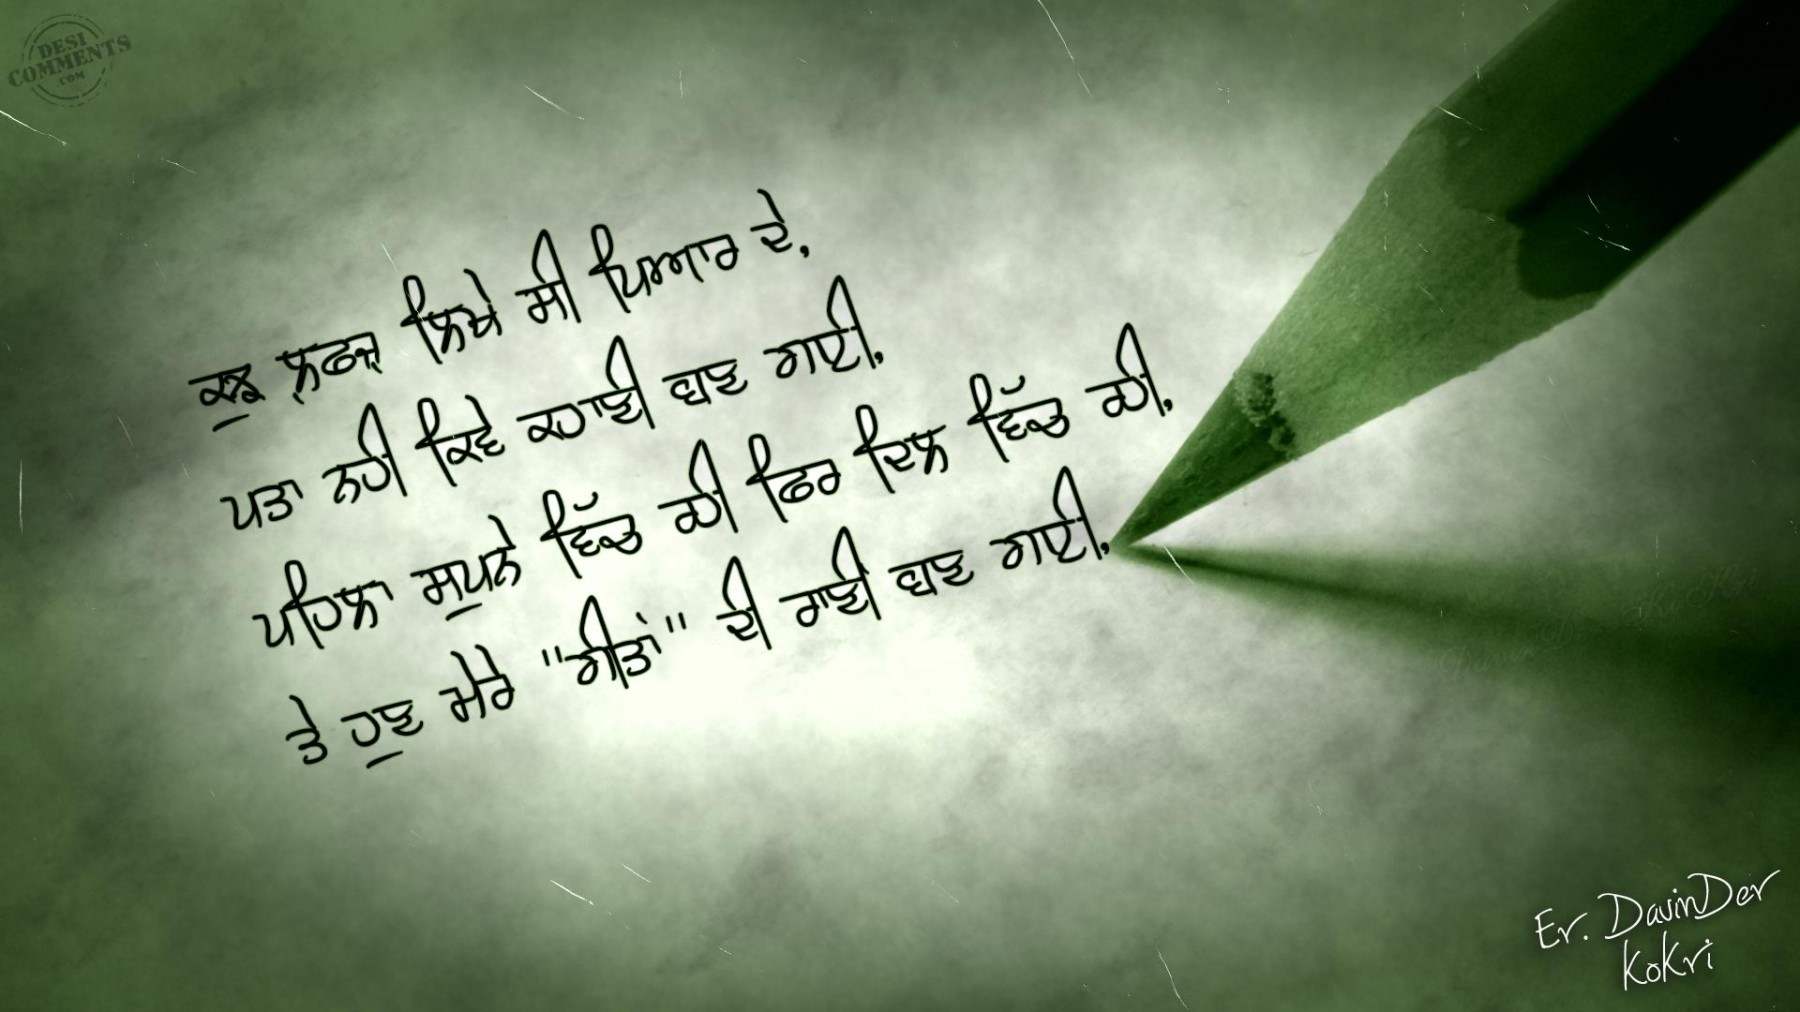 DESI
COMMENTS
.COM
ਕੁਝ ਲਫਜ਼ ਲਿਖੇ ਸੀ ਪਿਆਰ ਦੇ,
ਪਤਾ ਨਹੀ ਕਿਵੇ ਕਹਾਣੀ ਬਣ ਗਈ,
ਪਹਿਲਾ ਸੁਪਨੇ ਵਿੱਚ ਸੀ ਫਿਰ ਦਿਲ ਵਿੱਚ ਸੀ,
ਤੇ ਹੁਣ ਮੇਰੇ "ਗੀਤਾਂ" ਦੀ ਰਾਣੀ ਬਣ ਗਈ,
Er. DavinDer
KoKri